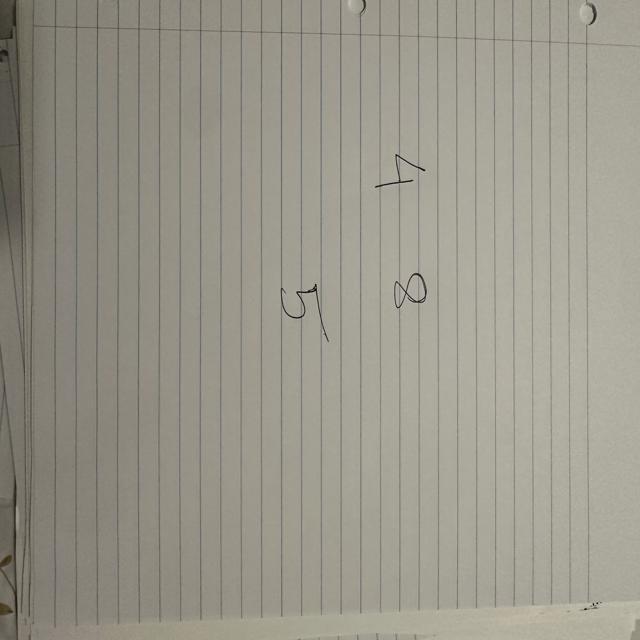 4 8
5